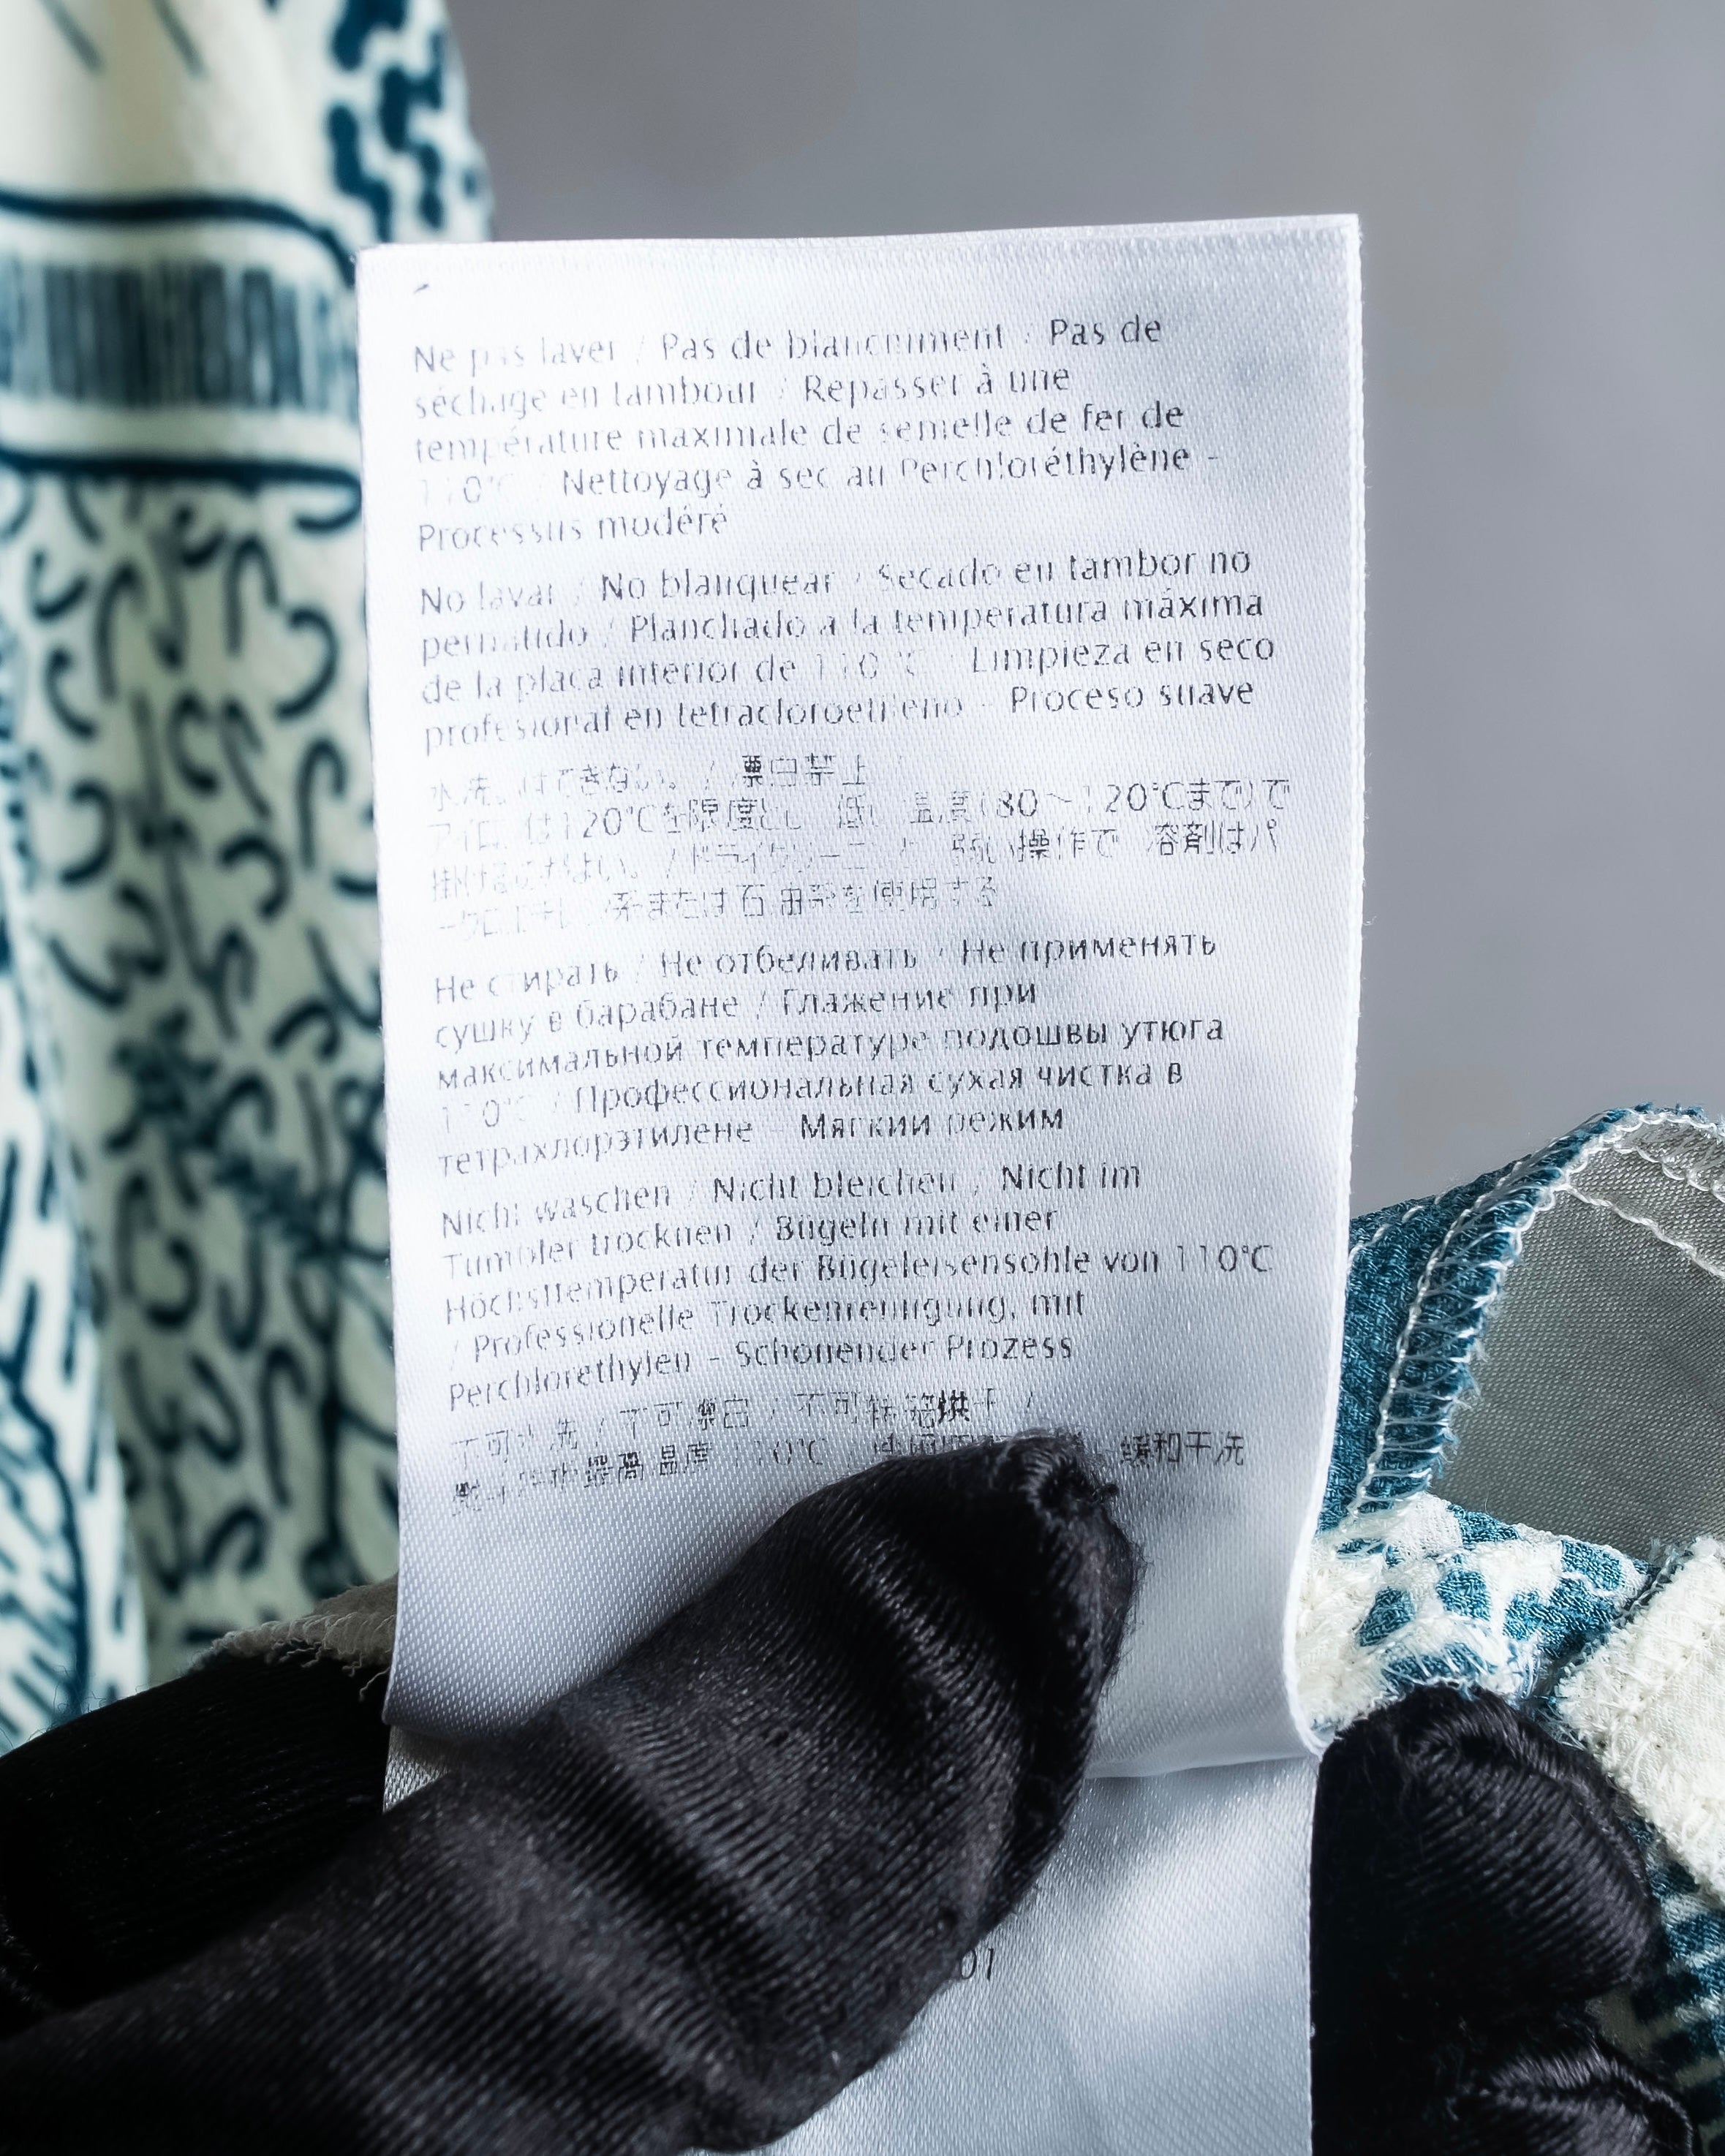 Ne pas laver / Pas de blanchiment / Pas de
séchage en tambour / Repasser à une
température maximale de semelle de fer de
110°C / Nettoyage à sec au Perchloréthylène -
Processus modéré
No lavar / No blanquear / Secado en tambor no
permitido / Planchado a la temperatura máxima
de la placa interior de 110 °C / Limpieza en seco
profesional en tetracloroetileno - Proceso suave
水洗いはできない。 / 漂白禁止 /
アイロンは120°Cを限度とし 低い温度(80～120°Cまで)で
掛けるのがよい。 / ドライクリーニング 弱い操作で 溶剤はパ
ークロロエチレン系または石油系を使用する
Не стирать / Не отбеливать / Не применять
сушку в барабане / Глажение при
максимальной температуре подошвы утюга
110°C / Профессиональная сухая чистка в
тетрахлорэтилене - Мягкий режим
Nicht waschen / Nicht bleichen / Nicht im
Tumbler trocknen / Bügeln mit einer
Höchsttemperatur der Bügeleisensohle von 110°C
/ Professionelle Trockenreinigung, mit
Perchlorethylen - Schonender Prozess
不可水洗 / 不可漂白 / 不可转笼烘干 /
最高温度 110°C 缓和干洗
01